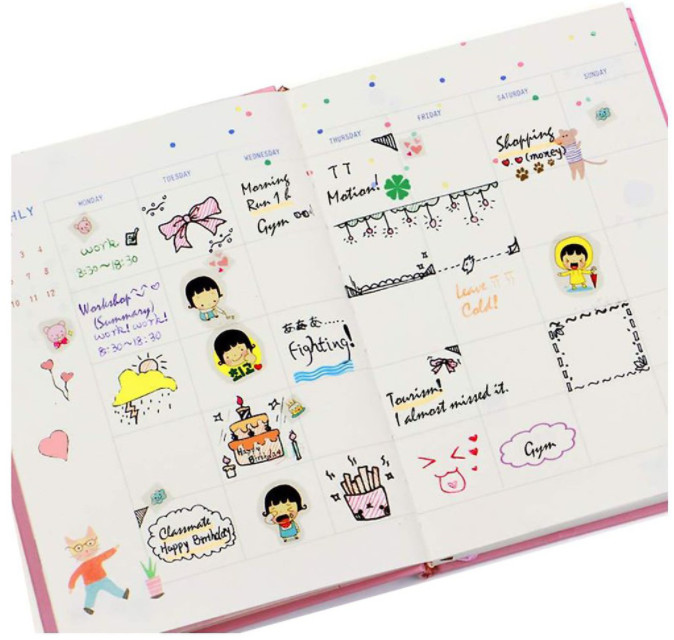 MONDAY
TUESDAY
WEDNESDAY
THURSDAY
FRIDAY
SATURDAY
SUNDAY
HLY
3 4
7 8
10 11 12
work
8:30~18:30
Morning
Run 1
Gym
TT
Motion!
Shopping
(money)
Workshop
(Summary)
work! work!
8:30~18:30
Leave
Cold!
초12
あああ......
Fighting!
Happy
Birthday
Tourism!
I almost missed it.
Classmate
Happy Birthday
Gym